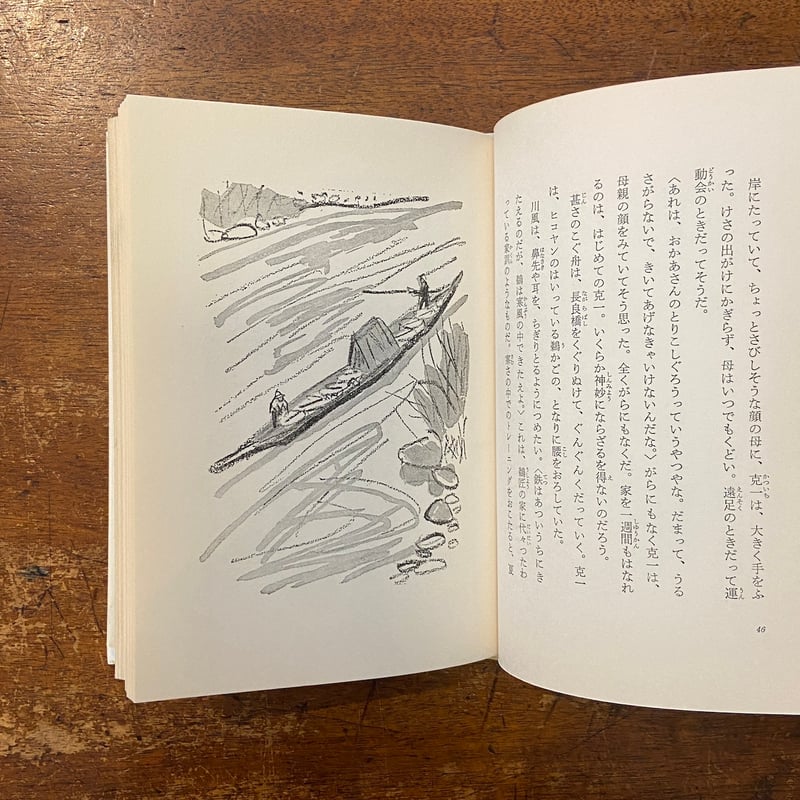 岸にたっていて、ちょっとさびしそうな顔の母に、克一は、大きく手をふ
った。けさの出がけにかぎらず、母はいつでもくどい。遠足のときだって運
動会のときだってそうだ。
〈あれは、おかあさんのとりこしぐろうっていうやつやな。だまって、うる
さがらないで、きいてあげなきゃいけないんだな。〉がらにもなく克一は、
母親の顔をみていてそう思った。全くがらにもなくだ。家を一週間もはなれ
るのは、はじめての克一。いくらか神妙にならざるを得ないのだろう。
甚さのこぐ舟は、長良橋をくぐりぬけて、ぐんぐんくだっていく。克一
は、ヒコヤンのはいっている鵜かごの、となりに腰をおろしていた。
川風は、鼻先や耳を、ちぎりとるようにつめたい。〈鉄はあついうちにき
たえるのだが、鵜は寒風の中できたえよ〉これは、鵜匠の家に代々つたわ
っている家訓のようなものだ。寒さの中でのトレーニングをおこたると、夏
46